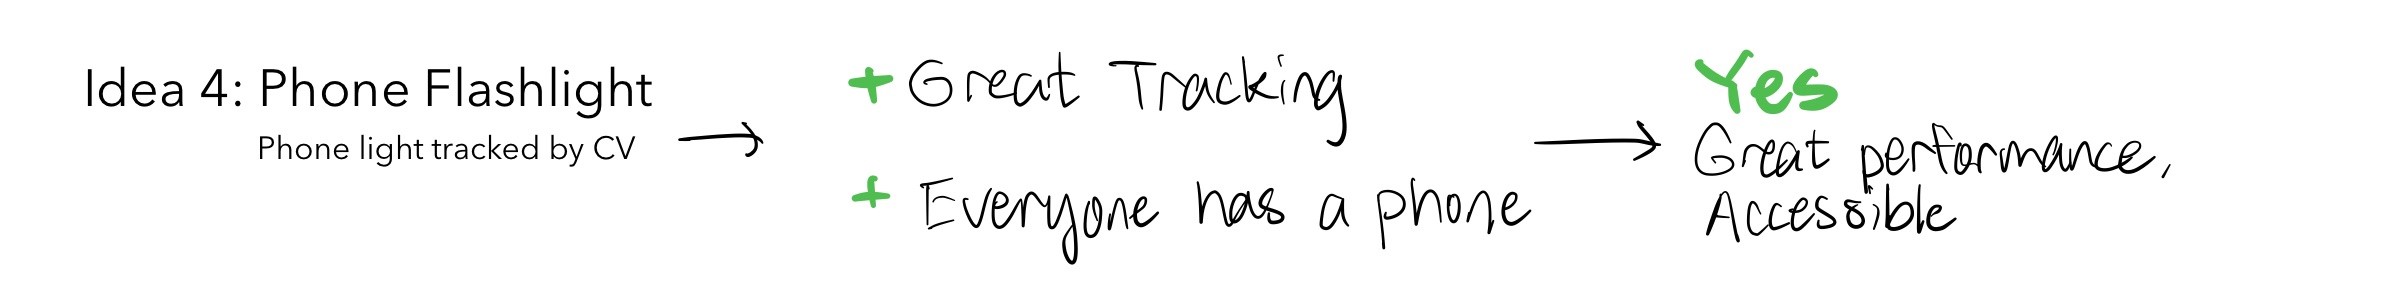 Idea 4: Phone Flashlight
Phone light tracked by CV
+ Great Tracking
+ Everyone has a phone
Yes
Great performance,
Accessible